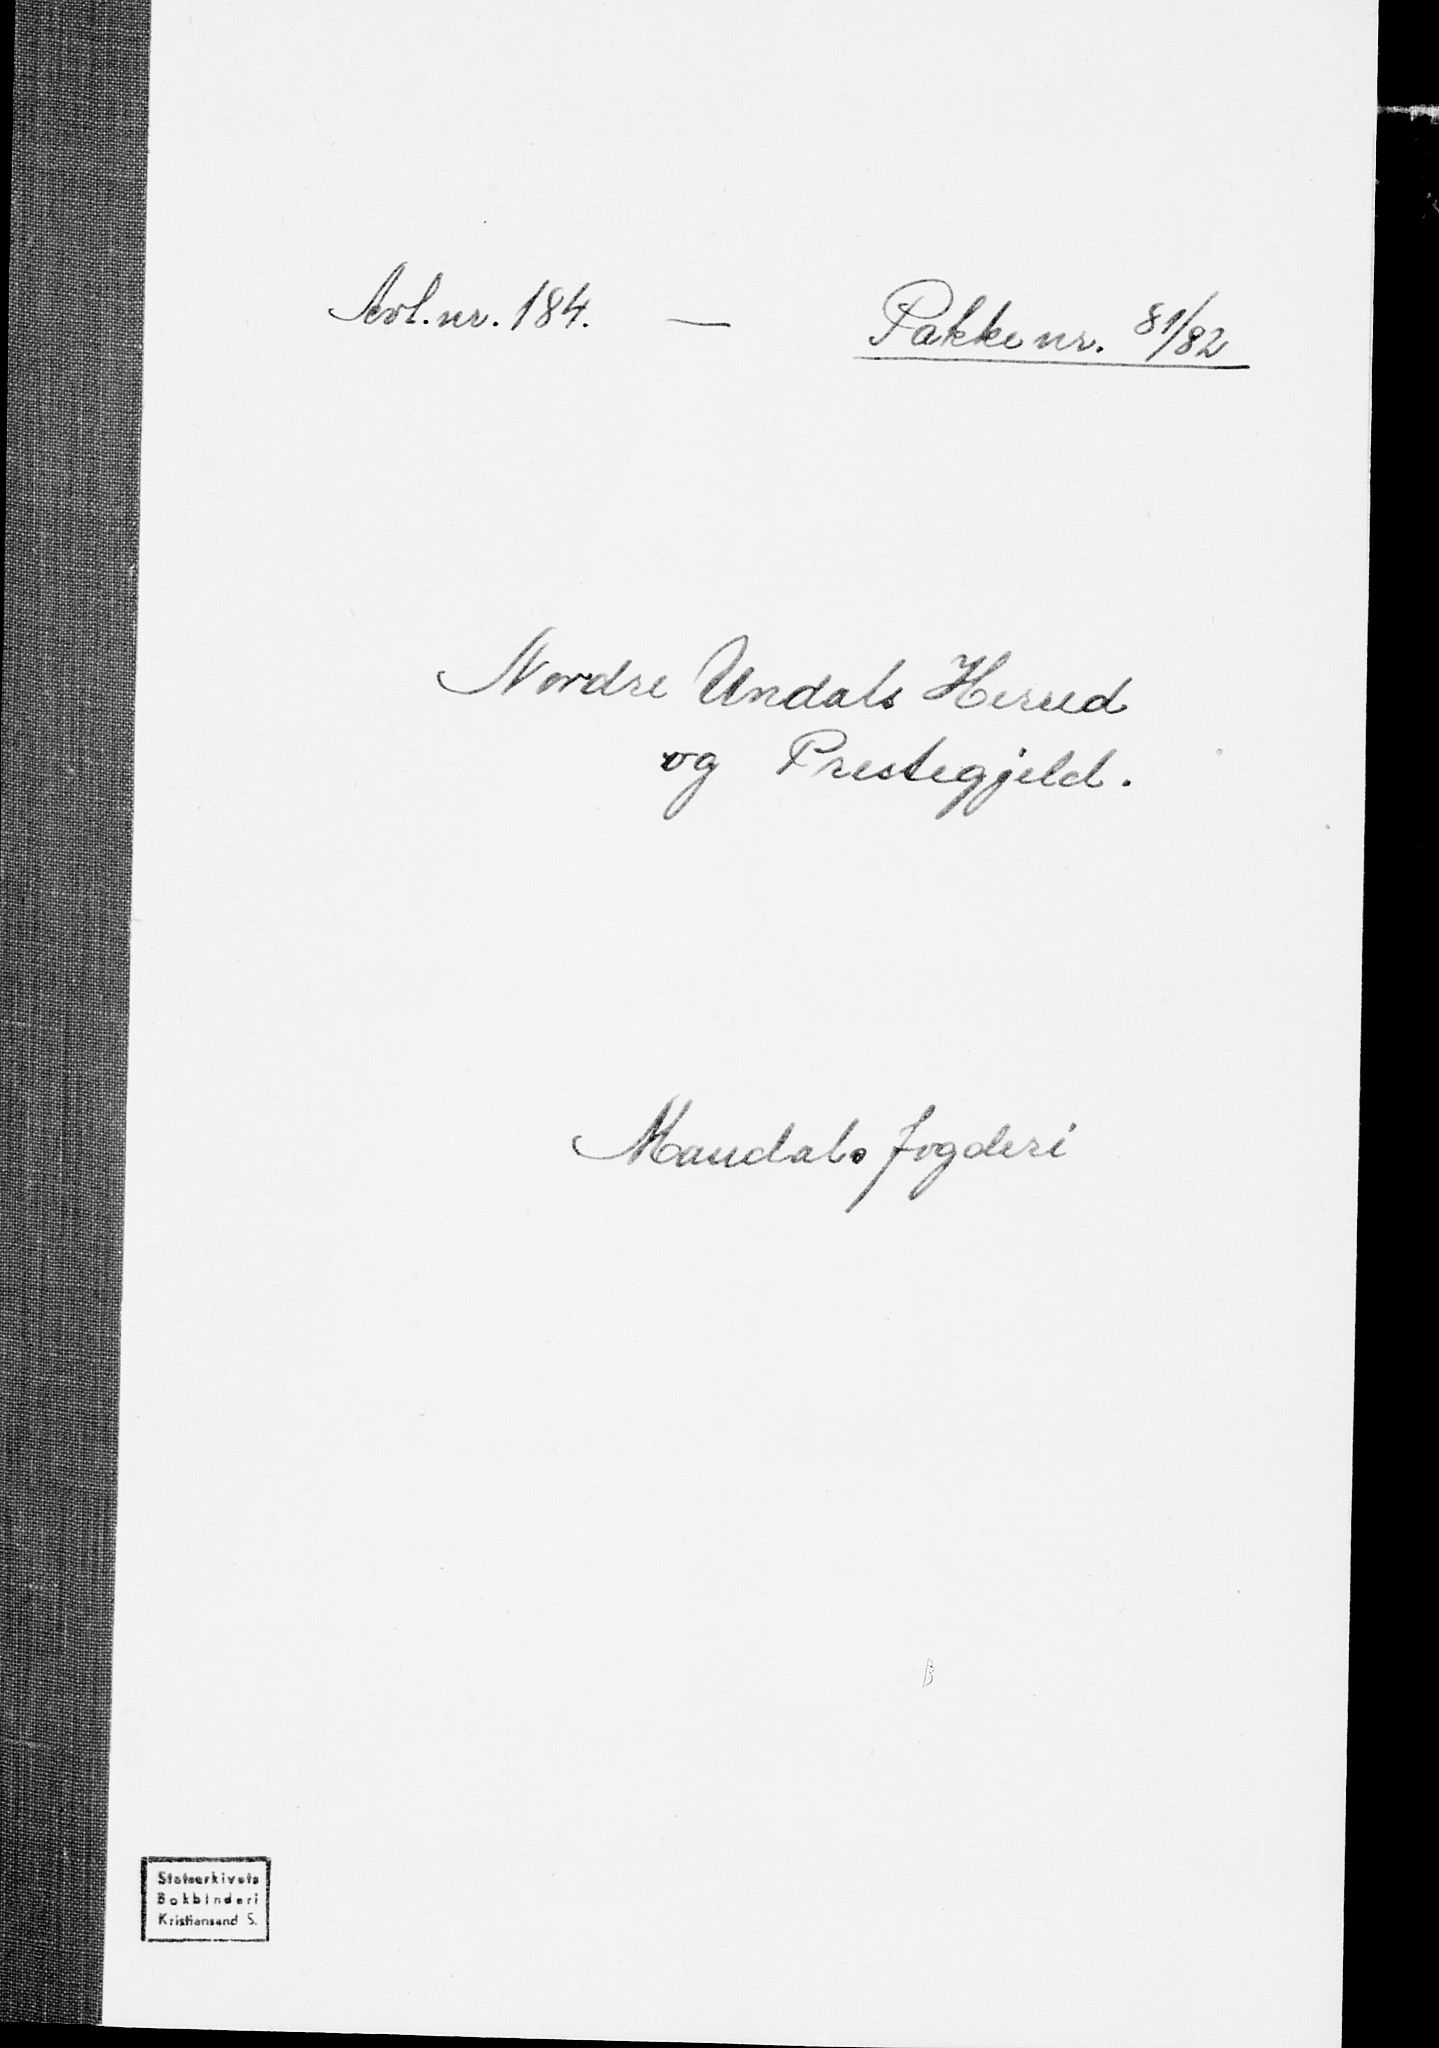 Avl. nr. 184. — Pakke nr. 81/82
Nordre Undals Herred
og Prestegjeld.
Mandals fogderi
B
Statsarkivets
Bokbinderi
Kristiansand S.